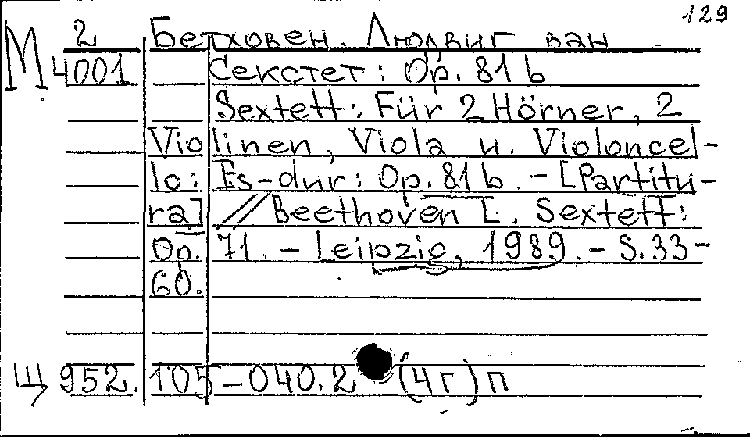 129
М 2 Бетховен, Людвиг ван
4001 Секстет: Op. 81 b
Sextett: Für 2 Hörner, 2
Violinen, Viola u. Violoncel-
lo: Es-dur: Op. 81 b. - [Partitu-
ra] // Beethoven L. Sextett:
Op. 71. - Leipzig, 1989. - S. 33-
60.
Щ 952. 105-040.2 (4г) п